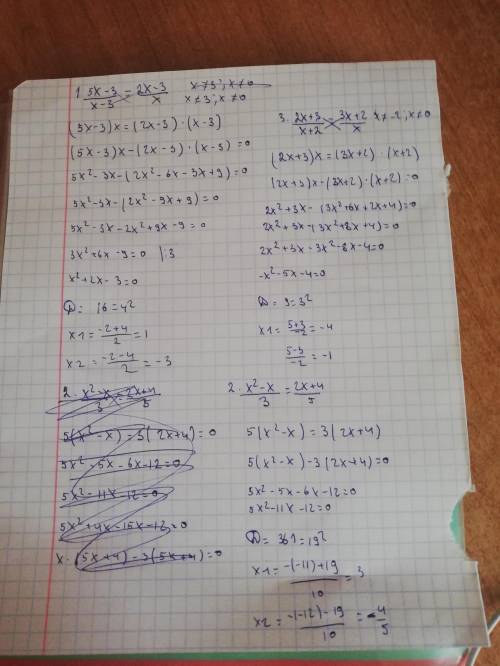 1. (5x-3)/(x-3) = (2x-3)/x x≠3; x≠0
x≠3; x≠0
(5x-3)x=(2x-3)·(x-3)
(5x-3)x-(2x-3)·(x-3)=0
5x²-3x-(2x²-6x-3x+9)=0
5x²-3x-(2x²-9x+9)=0
5x²-3x-2x²+9x-9=0
3x²+6x-9=0 |:3
x²+2x-3=0
D=16=4²
x1=(-2+4)/2=1
x2=(-2-4)/2=-3
3. (2x+3)/(x+2) = (3x+2)/x x≠-2; x≠0
(2x+3)x=(3x+2)·(x+2)
(2x+3)x-(3x+2)·(x+2)=0
2x²+3x-(3x²+6x+2x+4)=0
2x²+3x-(3x²+8x+4)=0
2x²+3x-3x²-8x-4=0
-x²-5x-4=0
D=9=3²
x1=(5+3)/-2=-4
(5-3)/-2=-1
2. (x²-x)/3=(2x+4)/5
5(x²-x)-3(2x+4)=0
5x²-5x-6x-12=0
5x²-11x-12=0
5x²+4x-15x-12=0
x·(5x+4)-3(5x+4)=0
2. (x²-x)/3=(2x+4)/5
5(x²-x)=3(2x+4)
5(x²-x)-3(2x+4)=0
5x²-5x-6x-12=0
5x²-11x-12=0
D=361=19²
x1=(-(-11)+19)/10=3
x2=(-(-12)-19)/10=-4/5